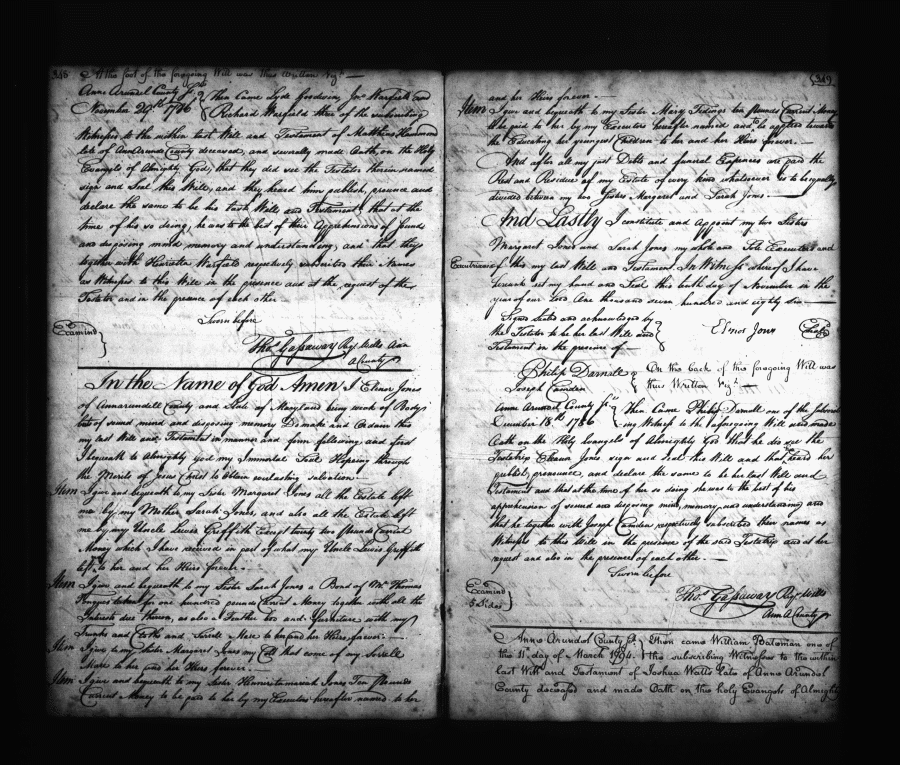 At the foot of the foregoing Will was thus Written Vizt.
Anne Arundel County Sct. Then Came Lyde Goodwin, Jos. Warfield and
November 29th 1786 Richard Warfield three of the subscribing
Witnesses to the within last Will and Testament of Matthew Hammond
late of Ann Arundel County deceased, and severally made Oath on the Holy
Evangels of Almighty God, that they did see the Testator therein named
sign and Seal this Will, and they heard him publish, pronounce and
declare the same to be his last Will and Testament that at the
time of his so doing, he was to the best of their Apprehensions of sound
and disposing mind memory and understanding, and that they
together with Henrietta Warfield respectively subscribed their Names
as Witnesses to this Will in the presence and at the request of the
Testator and in the presence of each other
Sworn before
Examind
Thos. Gassaway Regr. Wills Ann
A County
In the Name of God Amen I Elinor Jones
of Annarundell County and State of Maryland being weak of Body
but of sound mind and disposing memory Do make and Ordain this
my last Will and Testament in manner and form following and first
I bequeath to Almighty God my Immortal Soul Hopeing through
the Merits of Jesus Christ to Obtain everlasting salvation
Item I give and bequeath to my Sister Margaret Jones all the Estate left
me by my Mother Sarah Jones, and also all the Estate left
me by my Uncle Lewis Griffith Except twenty two Pounds Current
Money which I have received in part of what my Uncle Lewis Griffith
left, to her and her Heirs forever
Item I give and bequeath to my Sister Sarah Jones a Bond of Mr. Thomas
for one hundred pounds Current Money together with all the
Interest due thereon, as also a Feather bed and furniture with my
Trunks and Cloths and Sorrell Mare to her and her Heirs forever
Item I give to my Sister Margaret Jones my Colt that come of my Sorrell
Mare to her and her Heirs forever
Item I give and bequeath to my Sister Jones Ten Pounds
Current Money to be paid to her by my Executors hereafter named to her
349
and her Heirs forever
Item I give and bequeath to my Sister Mary ten Pounds Current Money
to be paid to her by my Executors hereafter named and to be applied towards
the Educating her youngest Children to her and her Heirs forever
And after all my just Debts and funeral Expences are paid the
Rest and Residue of my Estate of every kind whatsoever is to be equally
divided between my two Sisters Margaret and Sarah Jones
And Lastly I constitute and Appoint my two Sisters
Margaret Jones and Sarah Jones my whole and Sole Executors and
Executrixes of this my last Will and Testament. In Witness whereof I have
hereunto set my hand and Seal this tenth day of November in the
year of our Lord One thousand seven hundred and eighty six
Signd Sealed and acknowledged by
the Testator to be her last Will and
Testament in the presence of
Elinor Jones
Seal
Philip Darnall
Joseph Camden
On the back of this foregoing Will was
thus Written Vizt.
Anne Arundel County Sct. Then Came Philip Darnall one of the subscrib
December 18th 1786 ing Witnesses to the aforegoing Will and made
Oath on the Holy Evangels of Almighty God that he did see the
Testatrix Elinor Jones sign and Seal this Will and that he heard her
publish, pronounce and declare the same to be her last Will and
Testament and that at the time of her so doing she was to the best of his
apprehension of sound and disposing mind, memory, and understanding and
that he together with Joseph Camden respectively subscribed their names as
Witnesses to this Will in the presence of the said Testatrix and at her
request and also in the presence of each other
Sworn before
Examd
5 Sides
Thos. Gassaway Regr. Wills
Ann A County
Anne Arundel County Sct. Then came William Bateman one of
the 11th day of March 1794. the subscribing Witnesses to the within
last Will and Testament of Joshua Watts late of Anne Arundel
County deceased and made Oath on the holy Evangels of Almighty